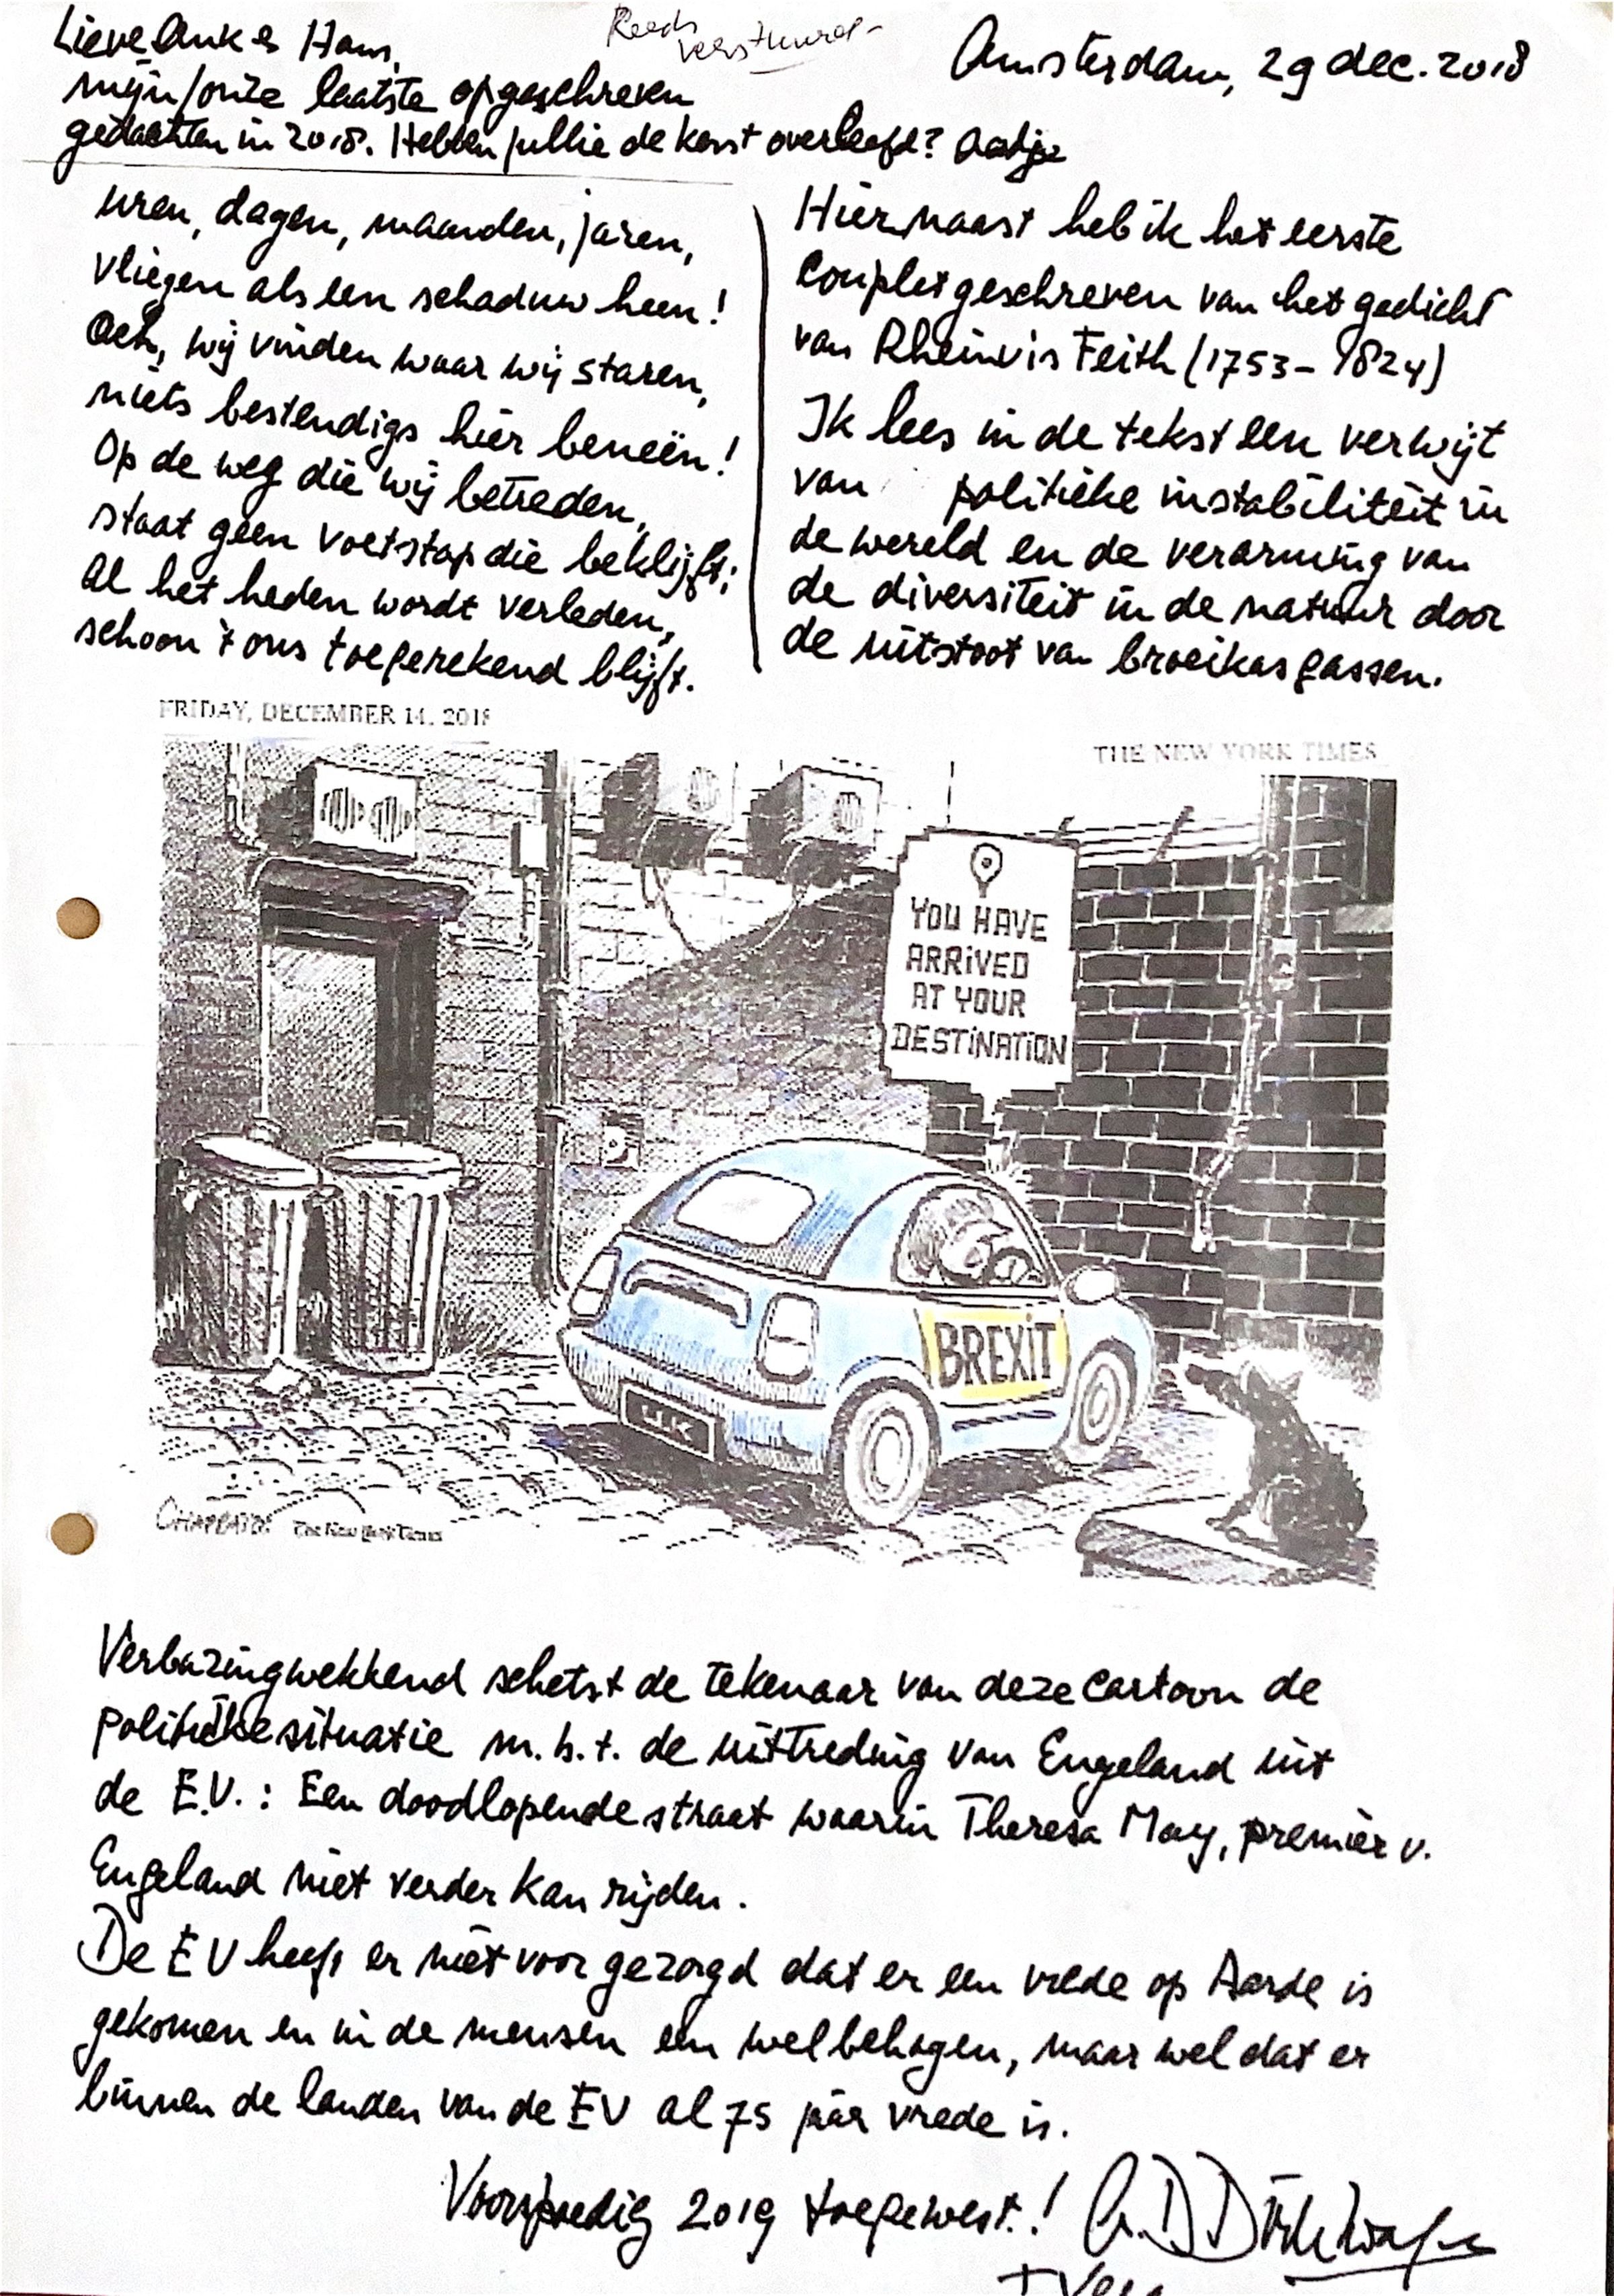 Lieve Ank & Hans,
Reeds
verstuurd
Amsterdam, 29 dec. 2018
mijn/onze laatste opgeschreven
gedachten in 2018. Hebben jullie de kerst overleefd? Aadje
uren, dagen, maanden, jaren,
vliegen als een schaduw heen!
Ach, wij vinden waar wij staren,
niets bestendigs hier beneën!
Op de weg die wij betreden,
staat geen voetstap die beklijft;
Al het heden wordt verleden,
schoon 't ons toegerekend blijft.
Hiernaast heb ik het eerste
Couplet geschreven van het gedicht
van Rheinvis Feith (1753-1824)
Ik lees in de tekst een verwijt
van politieke instabiliteit in
de wereld en de verarming van
de diversiteit in de natuur door
de uitstoot van broeikasgassen.
FRIDAY, DECEMBER 14, 2018
THE NEW YORK TIMES
YOU HAVE
ARRIVED
AT YOUR
DESTINATION
BREXIT
UK
CHAPPATTE The New York Times
Verbazingwekkend schetst de tekenaar van deze cartoon de
politieke situatie m.b.t. de uittreding van Engeland uit
de E.U.: Een doodlopende straat waarin Theresa May, premier v.
Engeland niet verder kan rijden.
De EU heeft er niet voor gezorgd dat er een vrede op Aarde is
gekomen en in de mensen een welbehagen, maar wel dat er
binnen de landen van de EU al 75 jaar vrede is.
Voorspoedig 2019 toegewenst.!
+ Vera